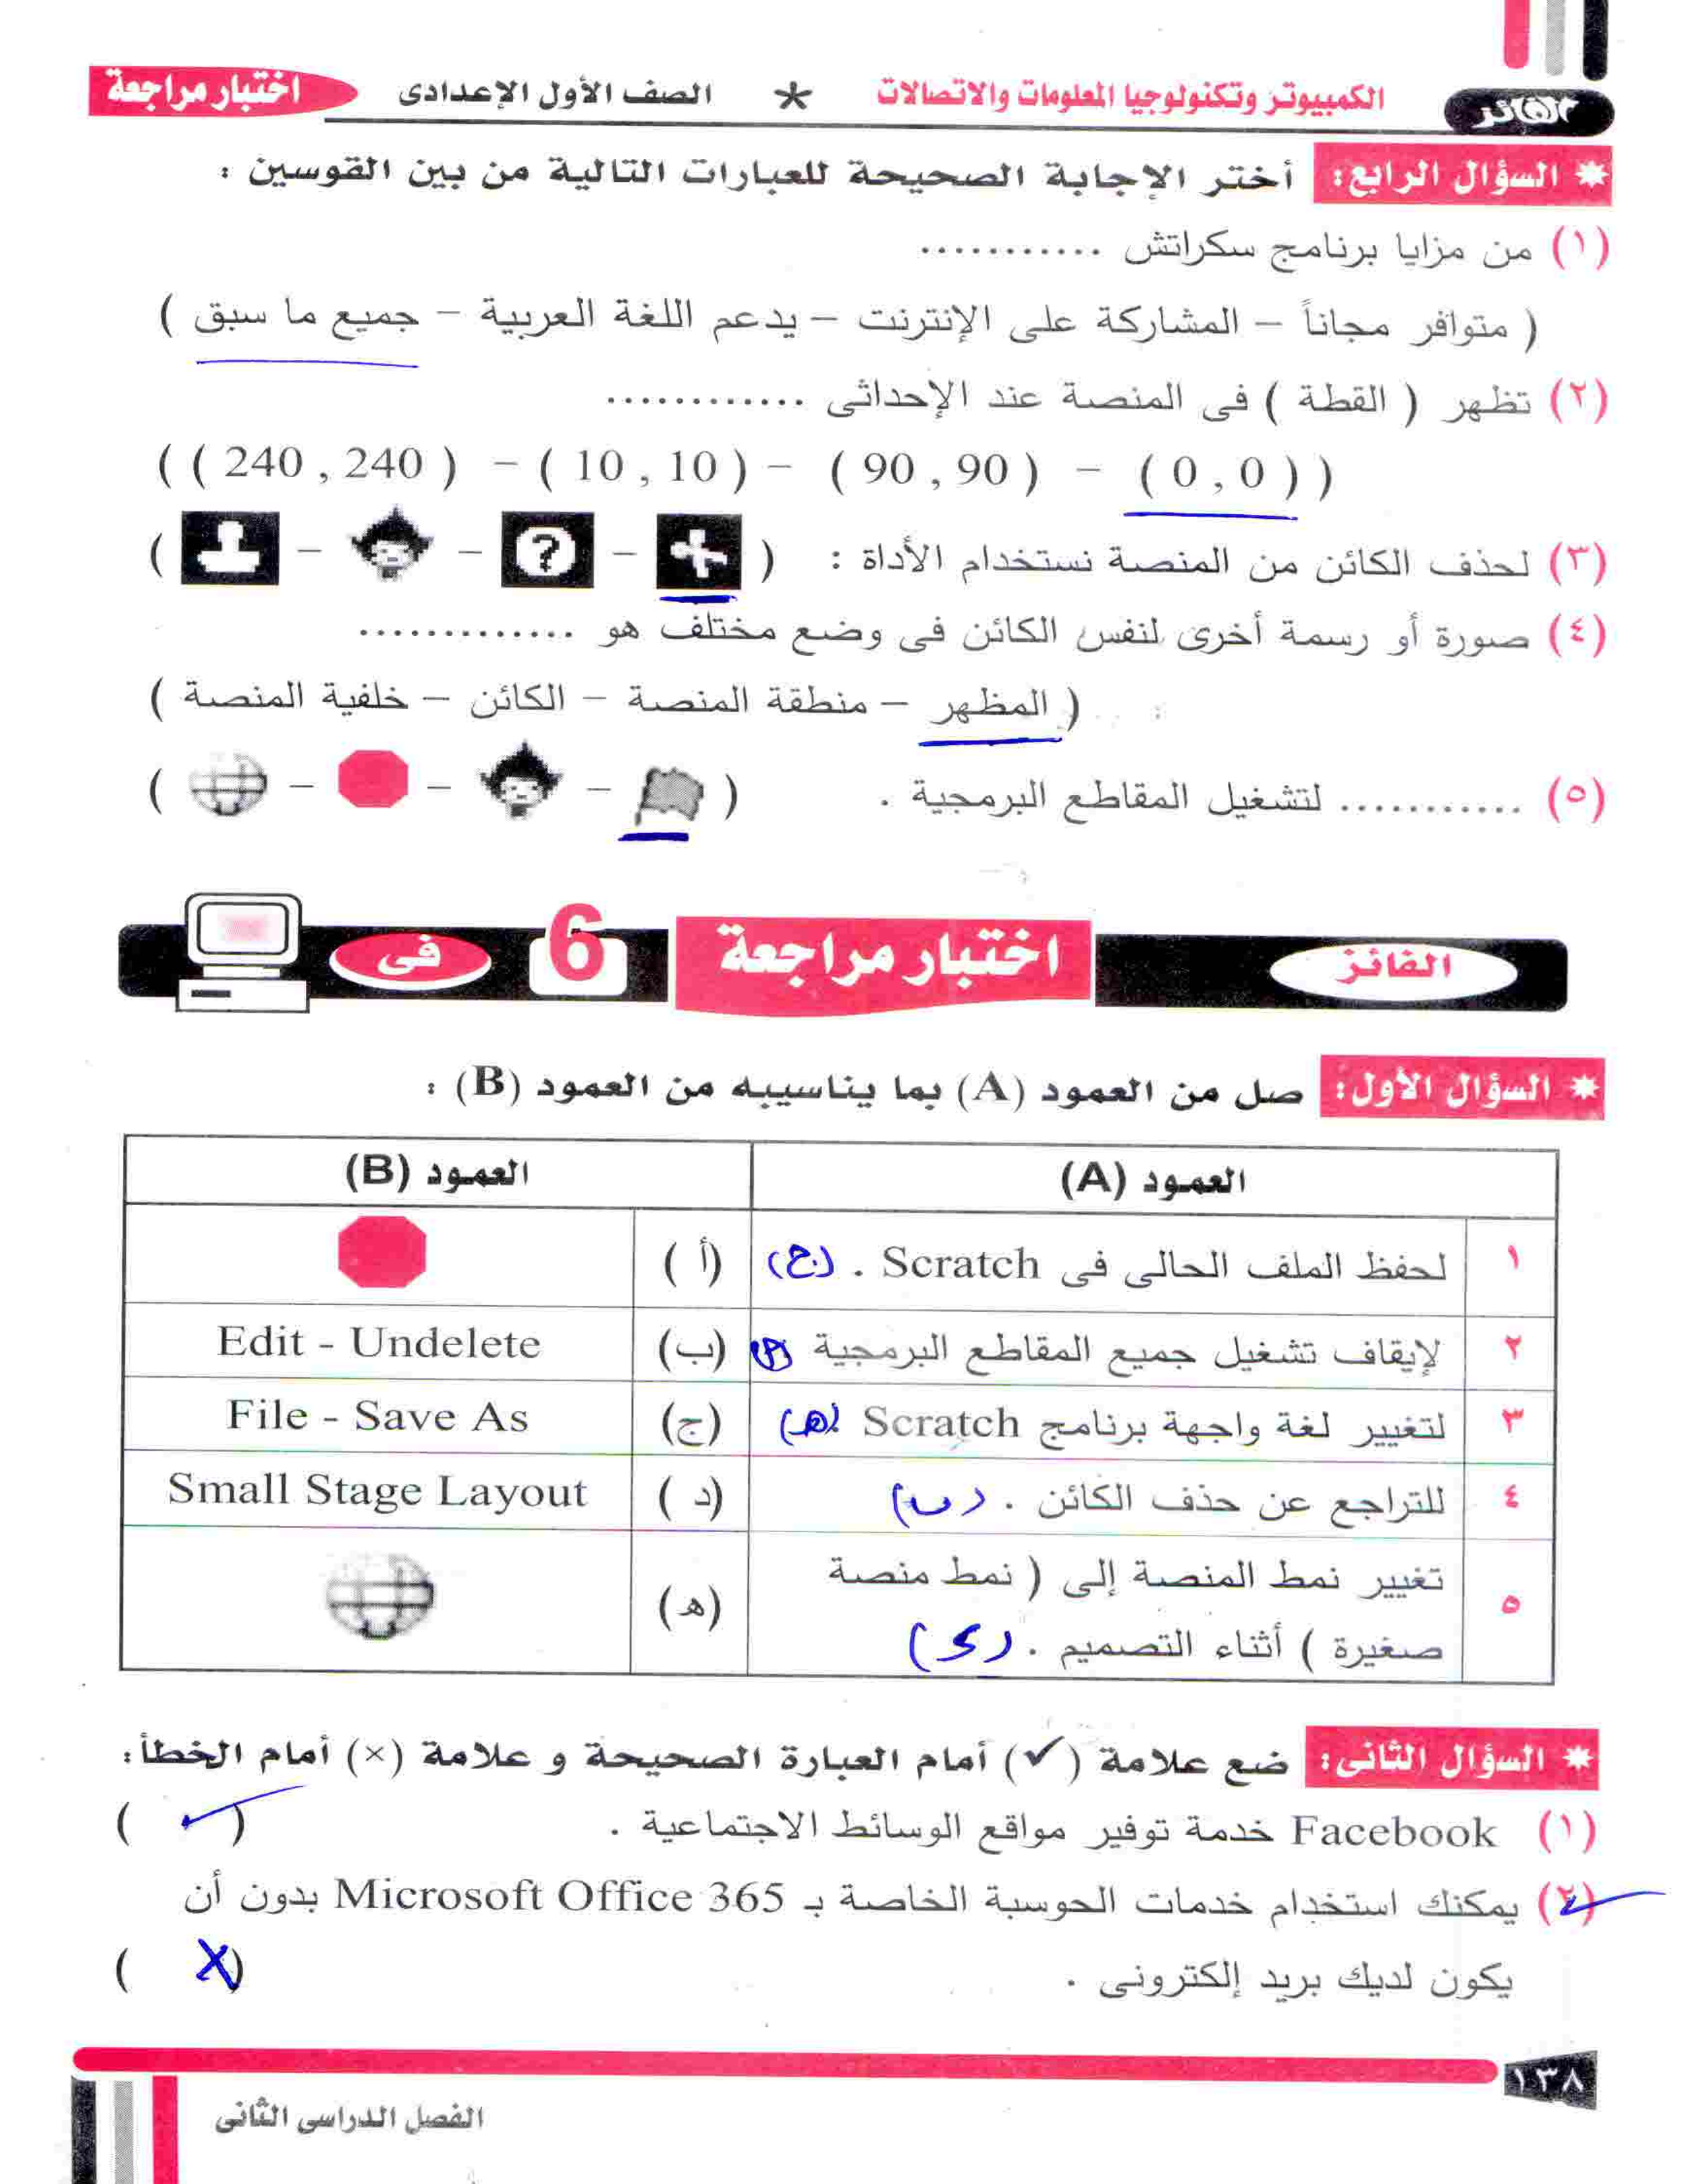 الفائز
الكمبيوتر وتكنولوجيا المعلومات والاتصالات * الصف الأول الإعدادى
اختبار مراجعة
* السؤال الرابع: أختر الإجابة الصحيحة للعبارات التالية من بين القوسين :
(١) من مزايا برنامج سكراتش ...........
( متوافر مجاناً – المشاركة على الإنترنت – يدعم اللغة العربية – جميع ما سبق )
(٢) تظهر ( القطة ) فى المنصة عند الإحداثى ............
( ( 240 , 240 ) – ( 10 , 10 ) – ( 90 , 90 ) – ( 0 , 0 ) )
(٣) لحذف الكائن من المنصة نستخدم الأداة : ( – ? – – )
(٤) صورة أو رسمة أخرى لنفس الكائن فى وضع مختلف هو .............
( المظهر – منطقة المنصة – الكائن – خلفية المنصة )
(٥) ........... لتشغيل المقاطع البرمجية . ( – – – )
الفائز
اختبار مراجعة
6
فى
* السؤال الأول: صل من العمود (A) بما يناسيبه من العمود (B) :
العمود (A) العمود (B)
١ لحفظ الملف الحالى فى Scratch . (ج) (أ )
٢ لإيقاف تشغيل جميع المقاطع البرمجية (أ) (ب) Edit - Undelete
٣ لتغيير لغة واجهة برنامج Scratch (هـ) (ج) File - Save As
٤ للتراجع عن حذف الكائن . (ب) (د ) Small Stage Layout
٥ تغيير نمط المنصة إلى ( نمط منصة
صغيرة ) أثناء التصميم . (د) (هـ)
* السؤال الثانى: ضع علامة (✓) أمام العبارة الصحيحة و علامة (×) أمام الخطأ:
(١) Facebook خدمة توفير مواقع الوسائط الاجتماعية . ( ✓ )
(٢) يمكنك استخدام خدمات الحوسبة الخاصة بـ Microsoft Office 365 بدون أن
يكون لديك بريد إلكترونى . ( X )
١٣٨
الفصل الدراسى الثانى